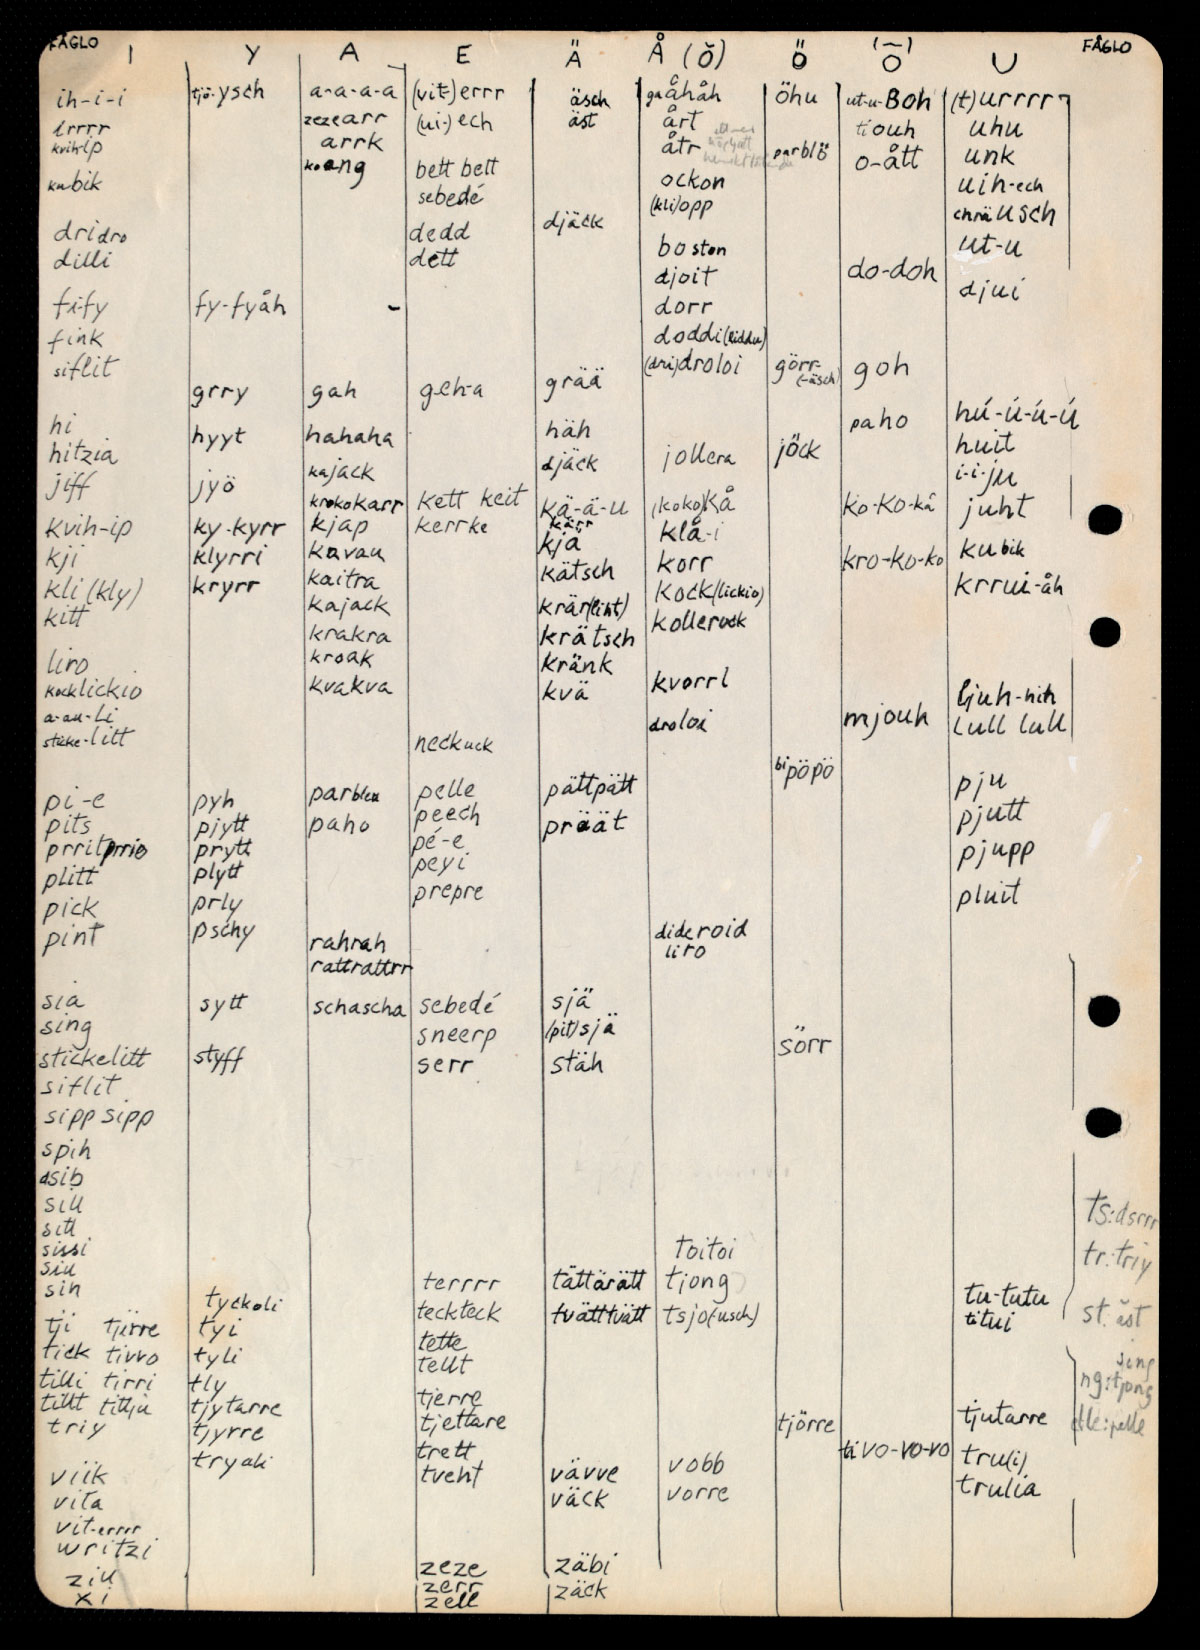 FÅGLO
FÅGLO
I Y A E Ä Å (Ŏ) Ö Ō U
ih-i-i tjö-ysch a-a-a-a (vit-)errr äsch gnåhåh öhu ut-u-Boh (t)urrrr
irrrr zezearr (ui-)ech äst årt tiouh uhu
kvih-ip arrk åtr parblö o-ått unk
kubik koang bett bett ockon uih-ech
sebedé (kli)opp chräusch
dridro dedd djäck boston ut-u
dilli dett djoit do-doh djui
fi-fy fy-fyåh - dorr
fink doddi(liddu)
siflit (dri)droloi görr-(-äsch) goh
grry gah geh-a grää
hi paho hú-ú-ú-ú
hitzia hyyt hahaha häh jollera jöck huit
jiff jyö kajack djäck i-i-ju
krokokarr kett keit kä-ä-u (koko)kå ko-ko-kå juht
kvih-ip ky-kyrr kjap kerrke kärr klå-i
kji klyrri kavau kjä korr kro-ko-ko kubik
kli (kly) kryrr kaitra kätsch kock(lickio) krrui-åh
kitt kajack krär(liht) kollerock
krakra krätsch
liro kroak kränk
kocklickio kvakva kvä kvorrl ljuh-hih
a-au-li droloi mjouh lull lull
sticke-litt neckuck
bipöpö
pi-e pyh parbleu pelle pättpätt pju
pits pjytt paho peech präät pjutt
prritprrio prytt pé-e pjupp
plitt plytt peyi
pick prly prepre pluit
pint pschy rahrah dideroid
rattrattrr liro
sia sytt schascha sebedé sjä
sing sneerp (pit)sjä
stickelitt styff serr stäh sörr
siflit
sipp sipp
spih
dsib
sill
sitt
sissi toitoi
siu
sih terrrr tättärätt tjong
tyckoli teckteck tvättvätt tsjo(-usch) tu-tutu
tji tjirre tyi tette titui
tick tivvo tyli tellt
tilli tirri tly tjerre
titt titju tjytarre tjettare tjörre tjutarre
triy tjyrre trett tivo-vo-vo tru(i)
viik tryoli tveht vävve vobb trulia
vita väck vorre
vit-errrr
writzi
ziu zeze zäbi
xi zerr zäck
zell
ts:dsrrr
tr:triy
st:äst
sing
ng:tjong
elle:pelle